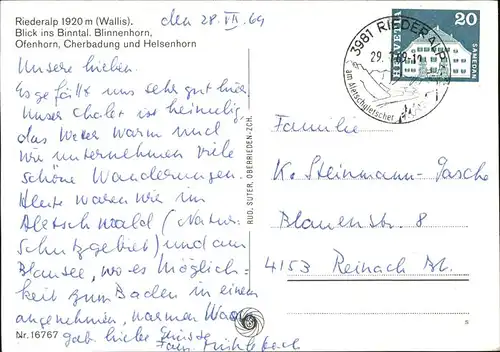 Riederalp 1920 m (Wallis).
Blick ins Binntal. Blinnenhorn,
Ofenhorn, Cherbadung und Helsenhorn
den 28. VII 69
Unsere lieben.
Es gefällt uns sehr gut hier.
Unser Chalet ist heimelig,
das Wetter warm und
wir unternehmen viele
schöne Wanderungen.
Heute waren wir im
Aletschwald (Natur-
schutzgebiet) und am
Blausee, wo es Möglich-
keit zum Baden in einem
angenehmen, warmen Wasser
gab. Liebe Grüsse
Fam.
Nr. 16767
RUD. SUTER, OBERRIEDEN-ZCH.
3981 RIEDERALP
29. 7.69-10
am Aletschgletscher
HELVETIA
20
SAMEDAN
Familie
K. Steinmann-Jasche
Blauenstr. 8
4153 Reinach BL.